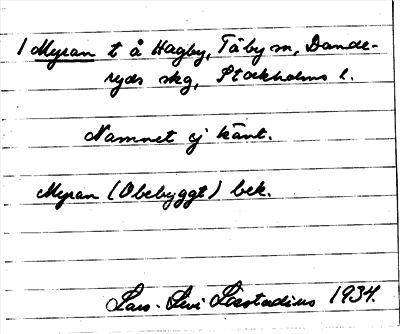 1 Myran t å Hagby, Täby sn, Dande-
ryds skg, Stockholms l.
Namnet ej känt.
Myran (Obebyggt) bek.
Lars-Levi Læstadius 1934.